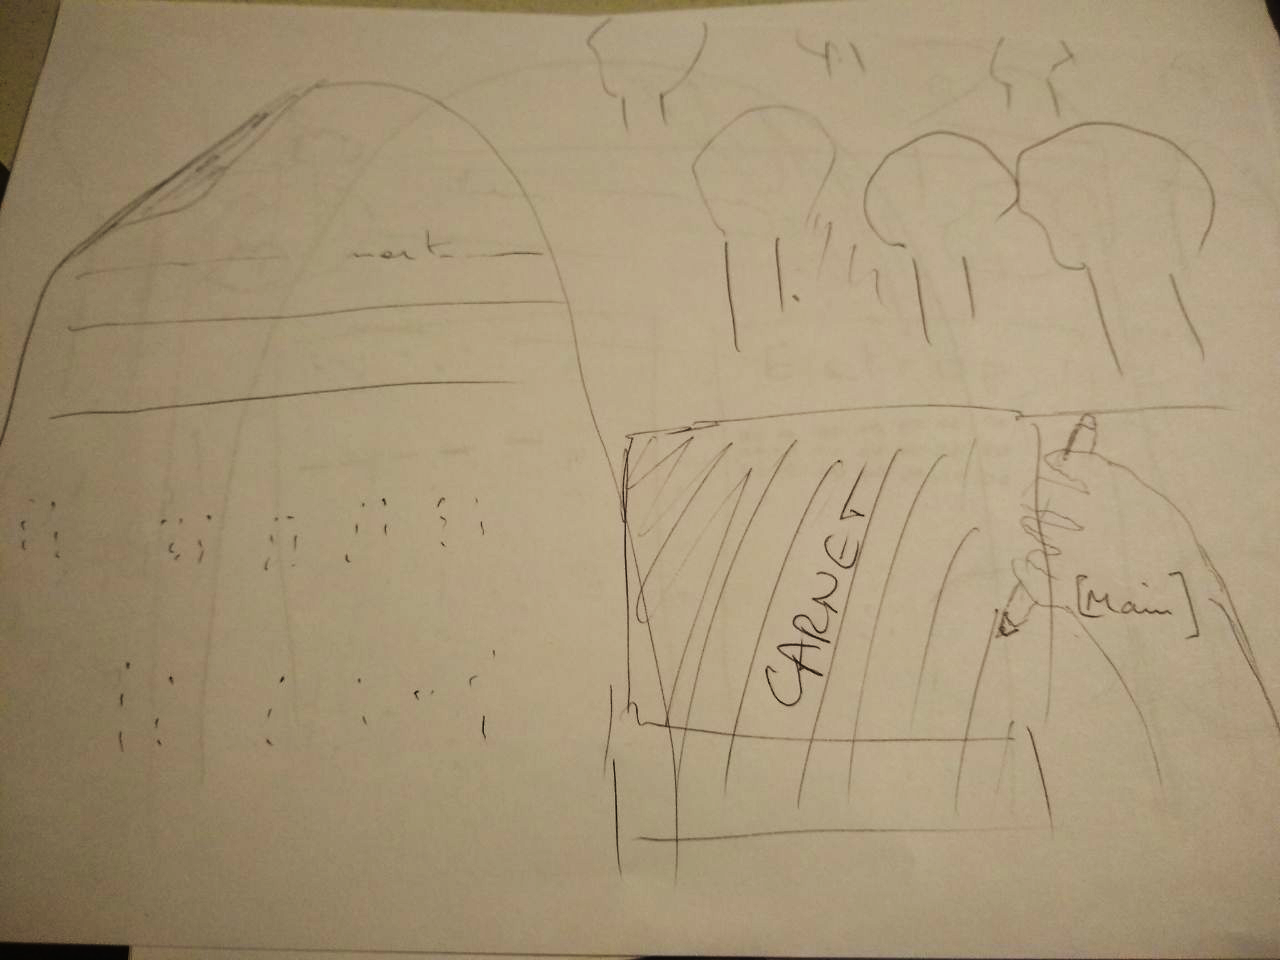 mort
CARNET
[Main]